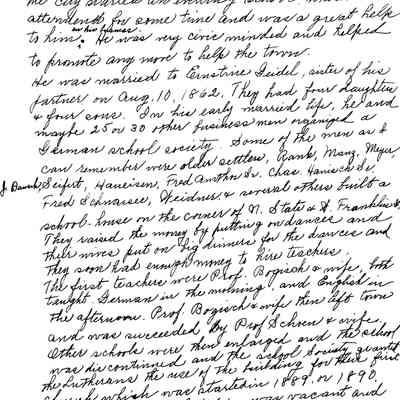 attendend for some time and was a great help
in his business
to him. He was very civic minded and helped
to promote any move to help the town.
He was married to Ernstine Seidel, sister of his
partner on Aug. 10, 1862. They had four daughters
& four sons. In his early married life, he and
maybe 25 or 30 other business men organized a
German school society. Some of the men as I
can remember were older settlers, Rank, Manz, Meyer,
Seifert, Haueisen, Fred Anthn Sr. Chas. Hanisch Sr.
Fred Schnasse, Weidner & several others built a
school-house on the corner of N. State & Franklin St.
They raised the money by putting on dances and
their wives put on big dinners for the dances and
they soon had enough money to hire teachers.
The first teachers were Prof. Bogisch & wife, both
taught German in the morning, and English in
the afternoon. Prof. Bogisch & wife then left town
and was succeeded by Prof Schoen & wife.
Other schools were then enlarged and the school
was discontinued and the school Society granted
the Lutherans the use of the building for their first
church which was started in 1889 or 1890.
was vacant and